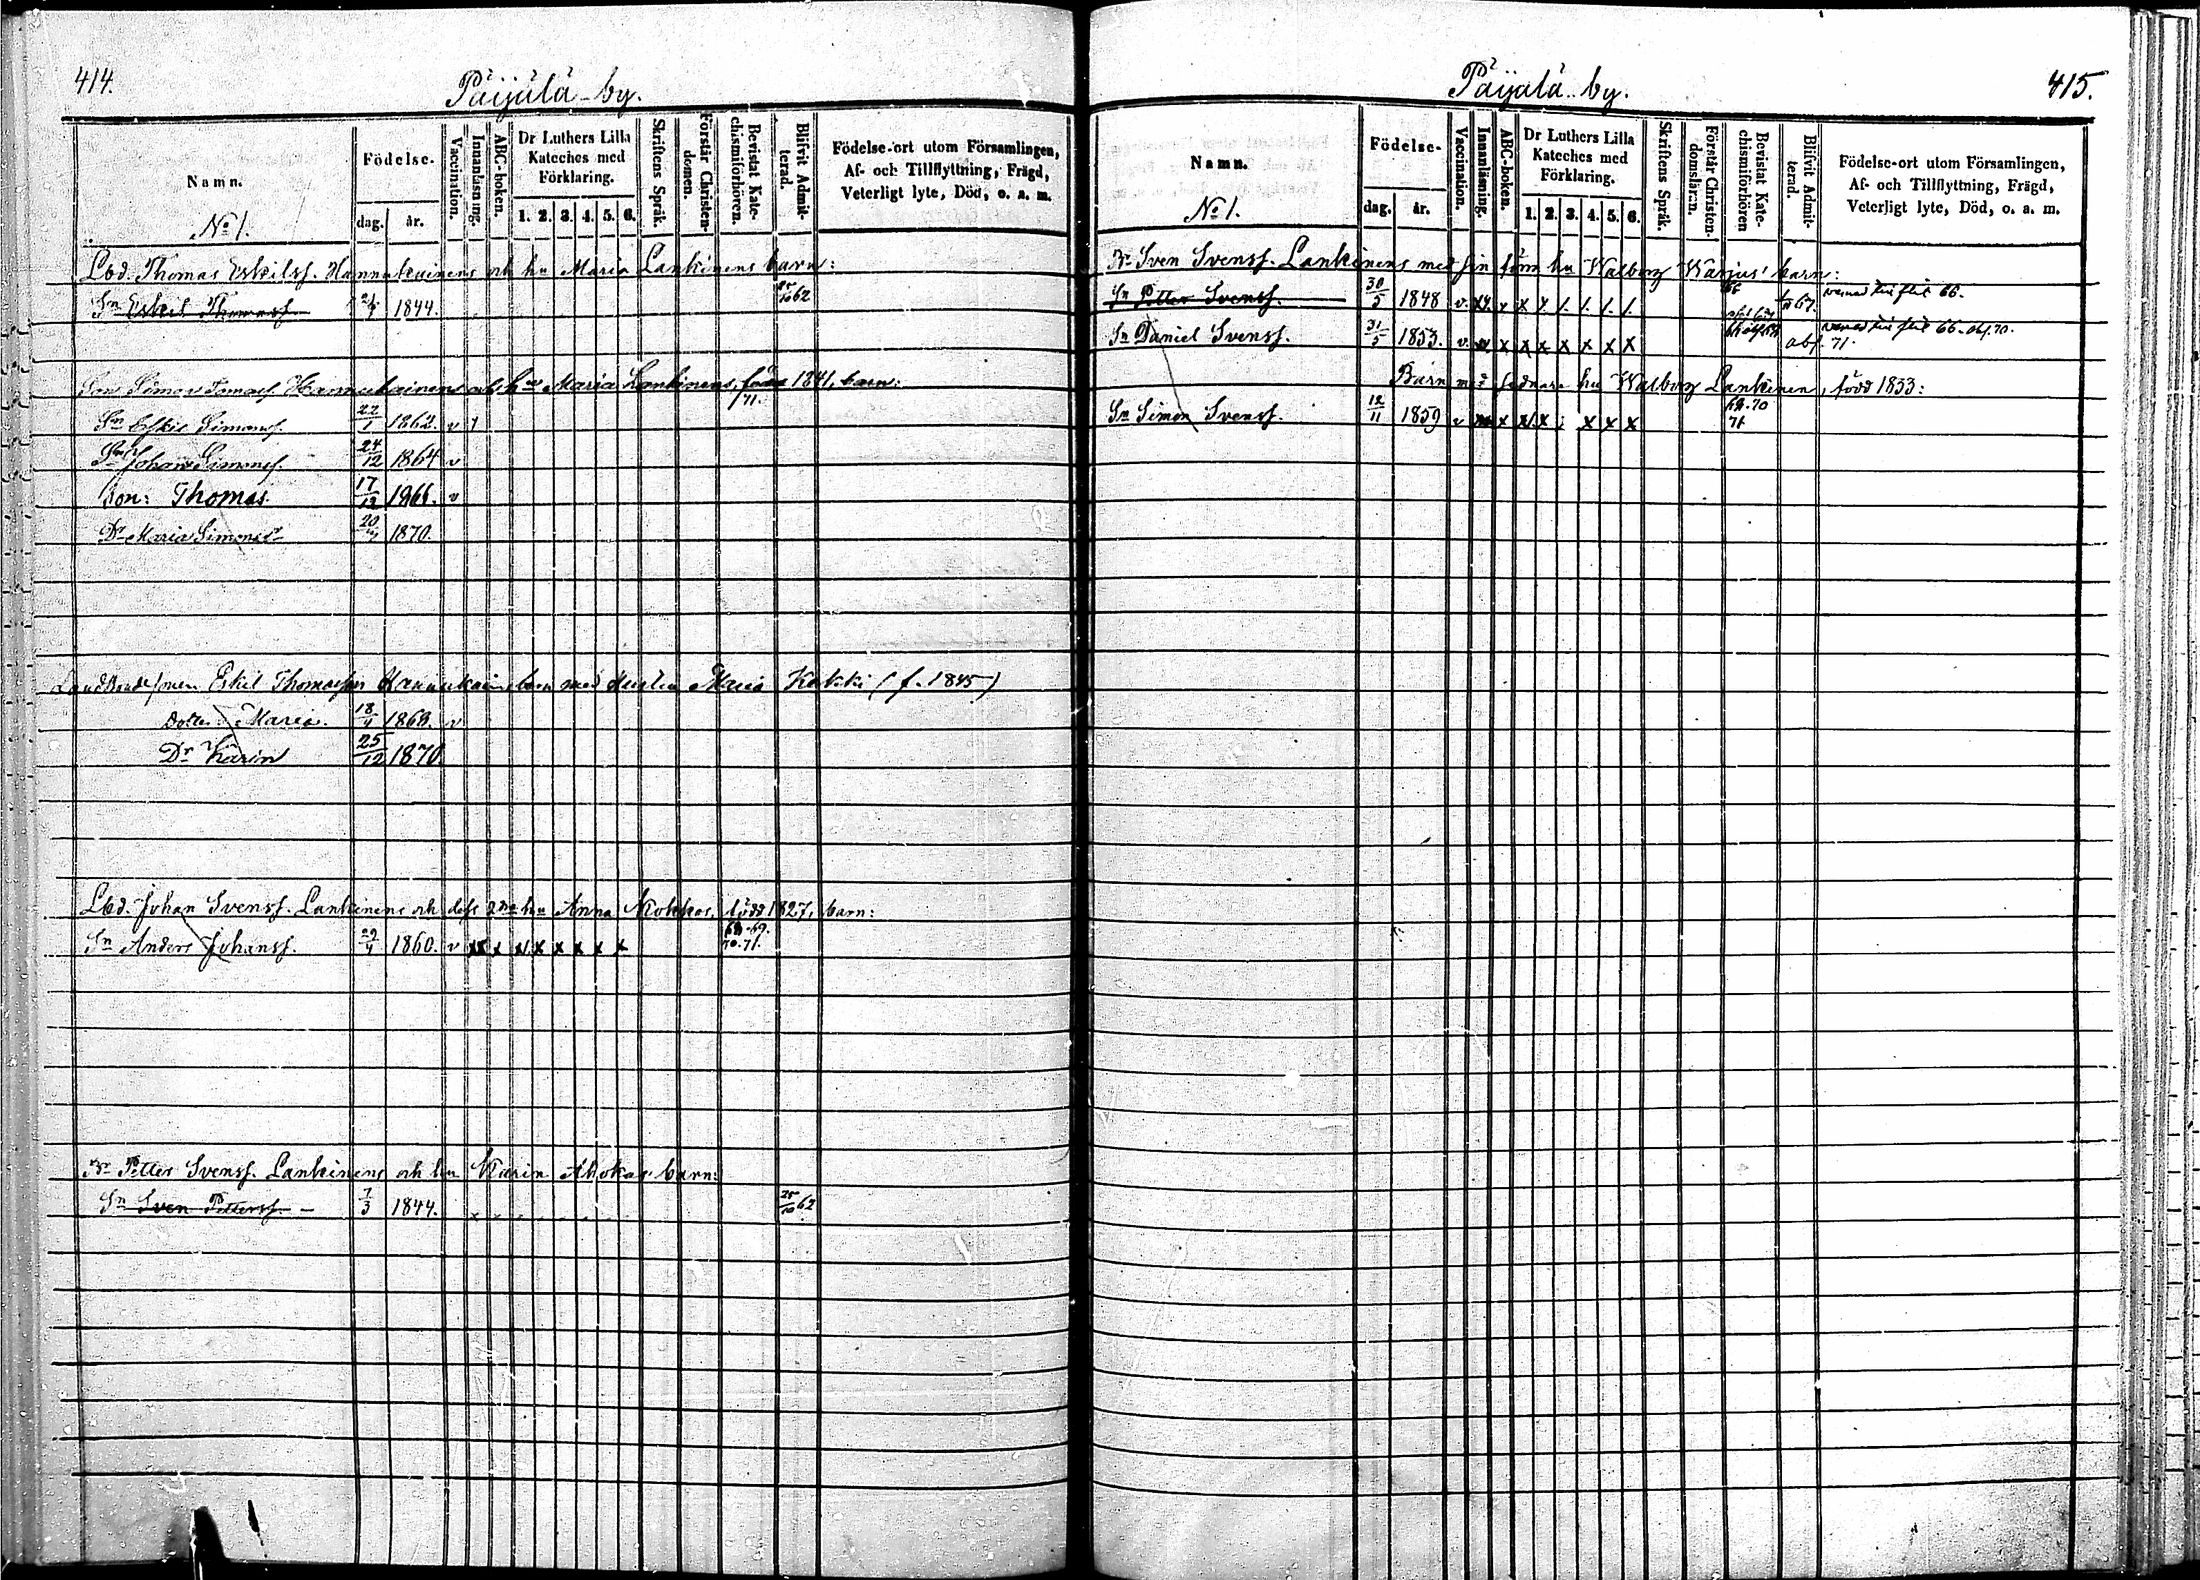 414.
Päijälä by.
Namn.
Födelse-
dag. år.
Vaccination.
Innanläsning.
ABC-boken.
Dr Luthers Lilla Kateches med Förklaring.
1. 2. 3. 4. 5. 6.
Skriftens Språk.
Förstår Christen-domen.
Bevistat Kate-chismiförhören.
Blifvit Admit-terad.
Födelse-ort utom Församlingen,
Af- och Tillflyttning, Frägd,
Veterligt lyte, Död, o. a. m.
No 1.
Lbd. Thomas Eskilss. Hannukainens och hu Maria Lankinens barn:
Sn Eskil Thomass 1844. 62
Son Simon Tomass. Hannukainens och hu Maria Lankinens, född 1841, barn:
71.
Sn Eskil Simonss. 22/1 1862. v
Sn Johan Simonss. 24/12 1864 v
Son: Thomas. 17/12 1866. v
Dr Maria Simonsd 1870.
Landbondesonen Eskil Thomasson Hannukainen barn med hustru Maria Kokki (f. 1845)
Dotter Maria. 18/4 1868. v
Dr Karin 25/12 1870.
Lbd. Johan Svenss. Lankinens och dess 2dra hu Anna Kokkos, född 1827, barn:
Sn Anders Johanss. 29/4 1860. v x x x x x x x 68.69.
70.71.
Br Petter Svenss. Lankinens och hu Karin Ahokas barn:
Sn Sven Petterss. 7/3 1844. 25/10 62
415.
Päijälä by.
Namn.
Födelse-
dag. år.
Vaccination.
Innanläsning.
ABC-boken.
Dr Luthers Lilla Kateches med Förklaring.
1. 2. 3. 4. 5. 6.
Skriftens Språk.
Förstår Christen-domsläran.
Bevistat Kate-chismiförhören
Blifvit Admit-terad.
Födelse-ort utom Församlingen,
Af- och Tillflyttning, Frägd,
Veterligt lyte, Död, o. a. m.
No 1.
Br Sven Svenss. Lankinens med sin förra hu Walborg Warjus' barn:
Sn Petter Svenss. 30/5 1848 v. x x x 66 67. 66.
Sn Daniel Svenss. 31/5 1853. v. x x x x x x x 66. 70.
71.
Barn med sednare hu Walborg Lankinen, född 1833:
Sn Simon Svenss. 12/11 1859 v x x x x x x 69.70
71